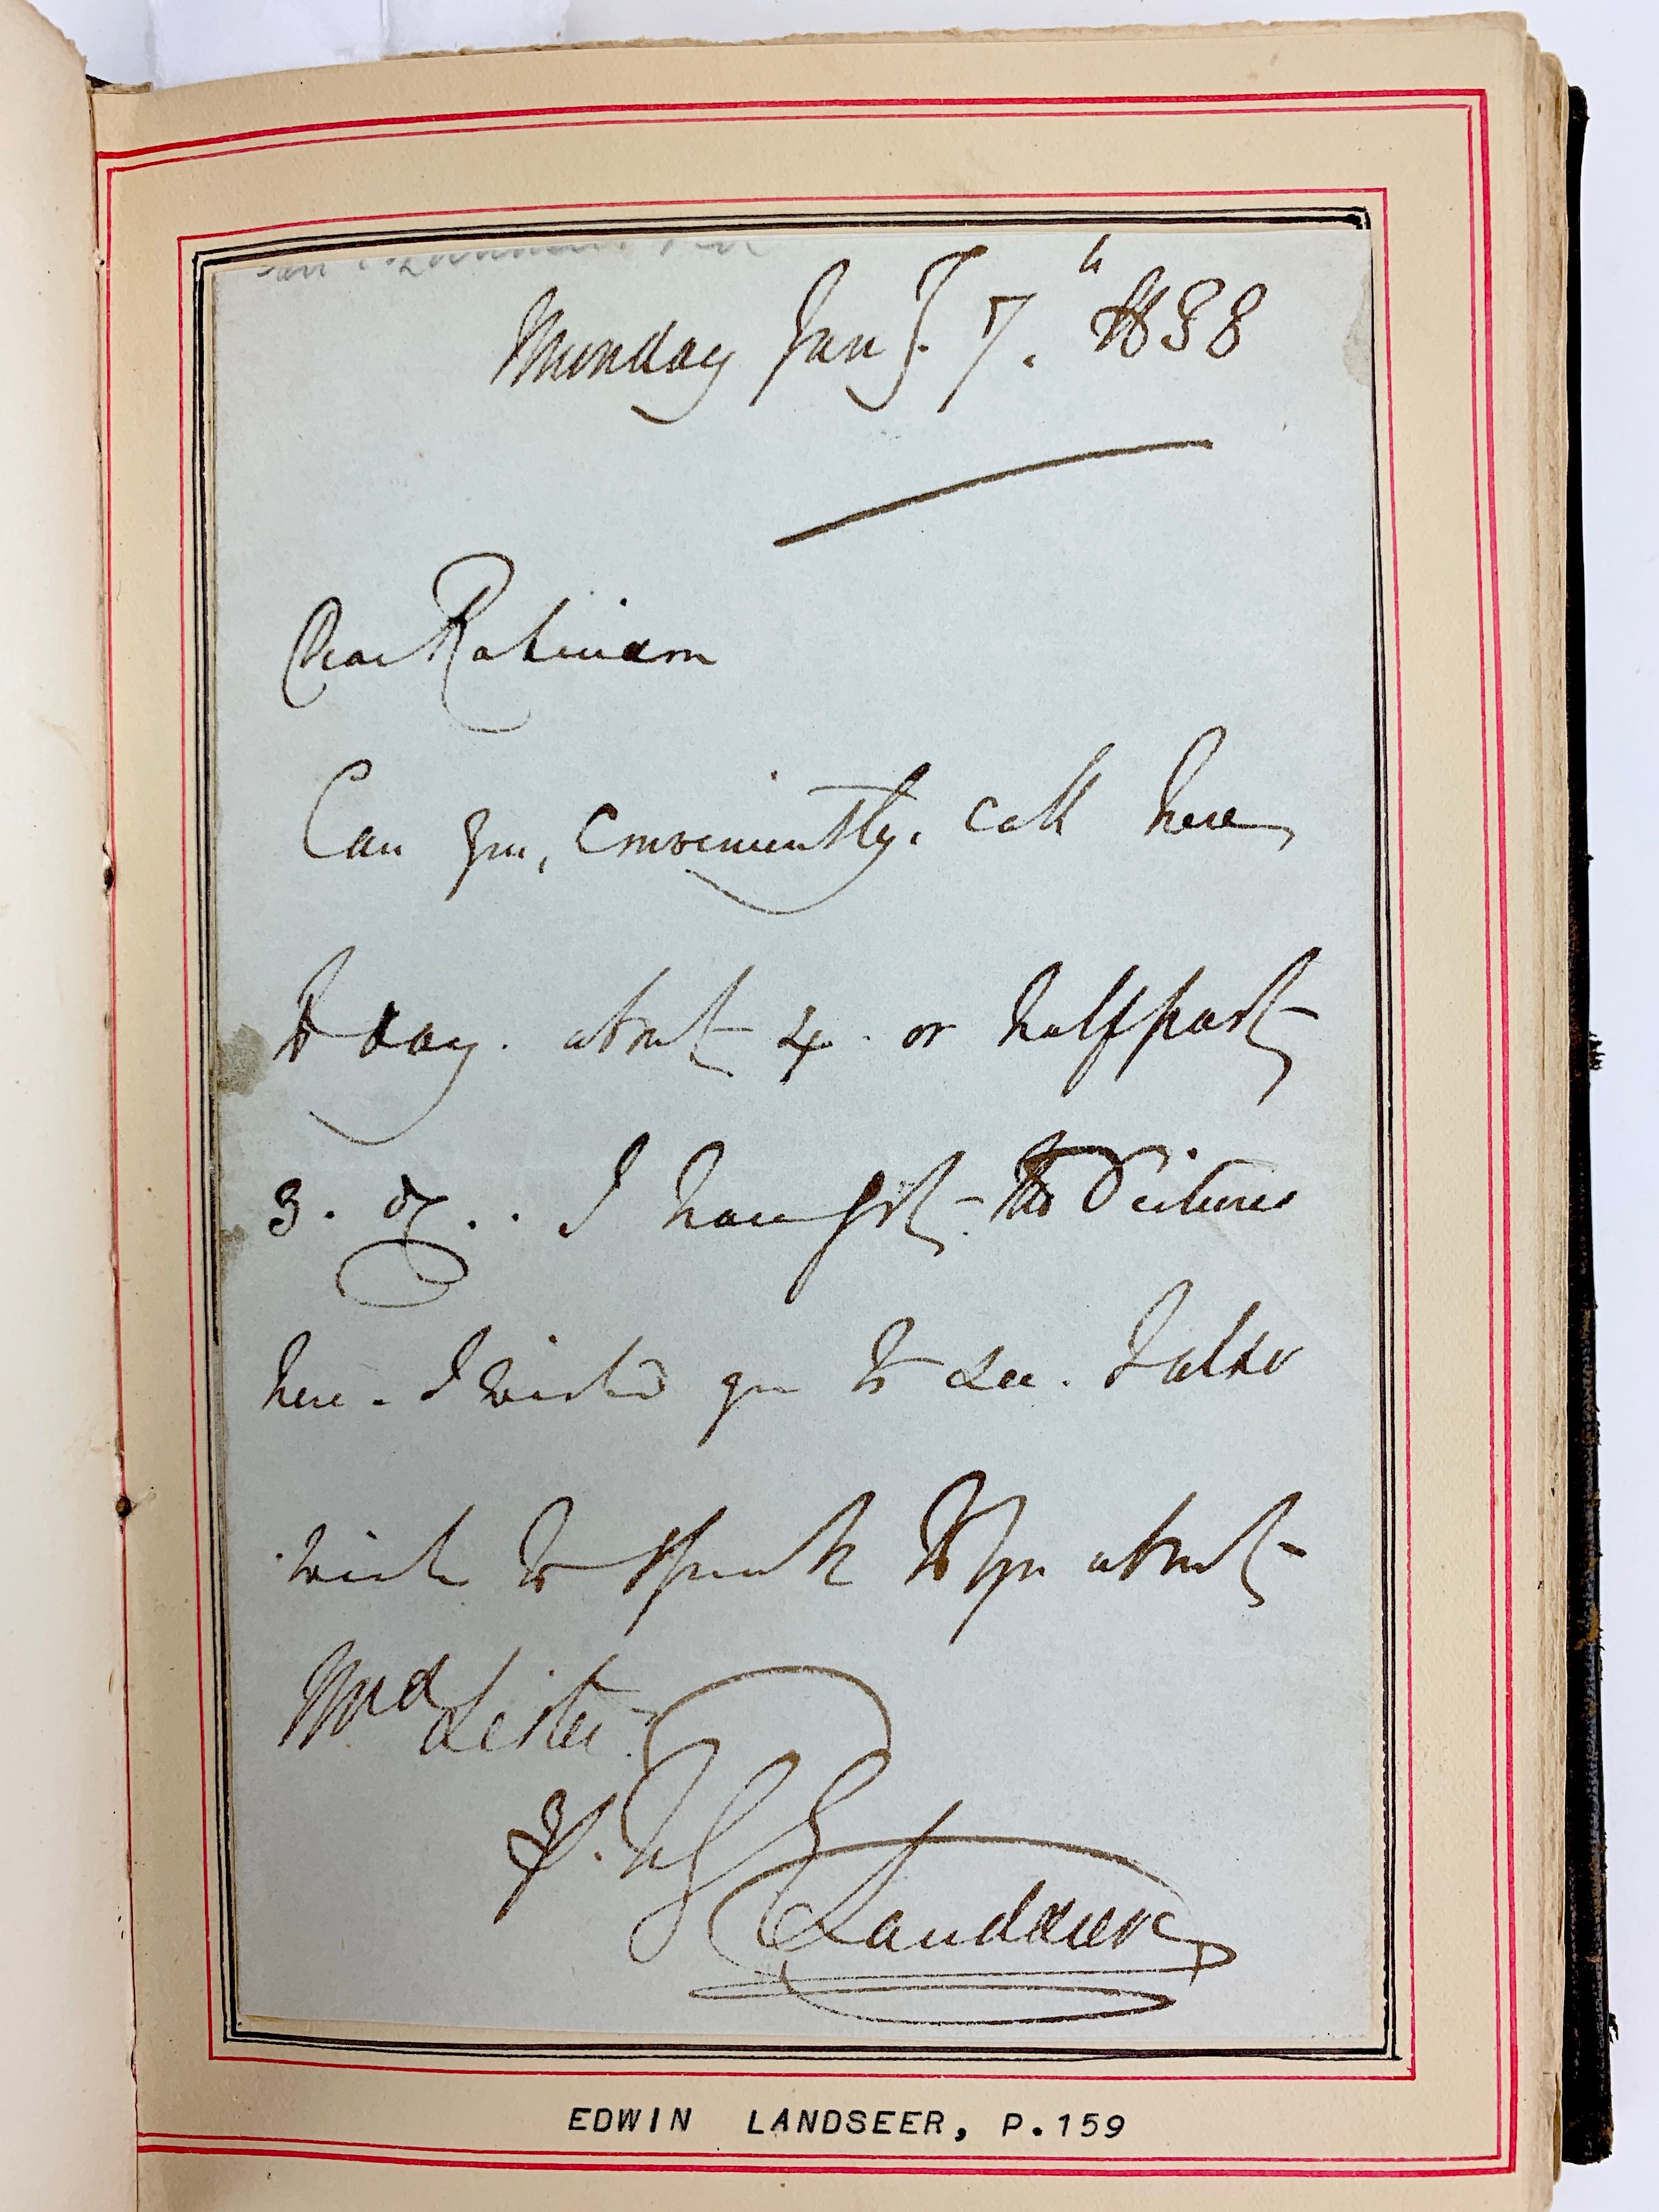 Monday Jany. 7.th 1838
Dear Robinson
Can you, conveniently, call here
to day. about 4 or half past
3. I have got the Pictures
here. I wished you to see. I also
wish to speak to you about
Mrd Lister
E Landseer
EDWIN LANDSEER, P.159